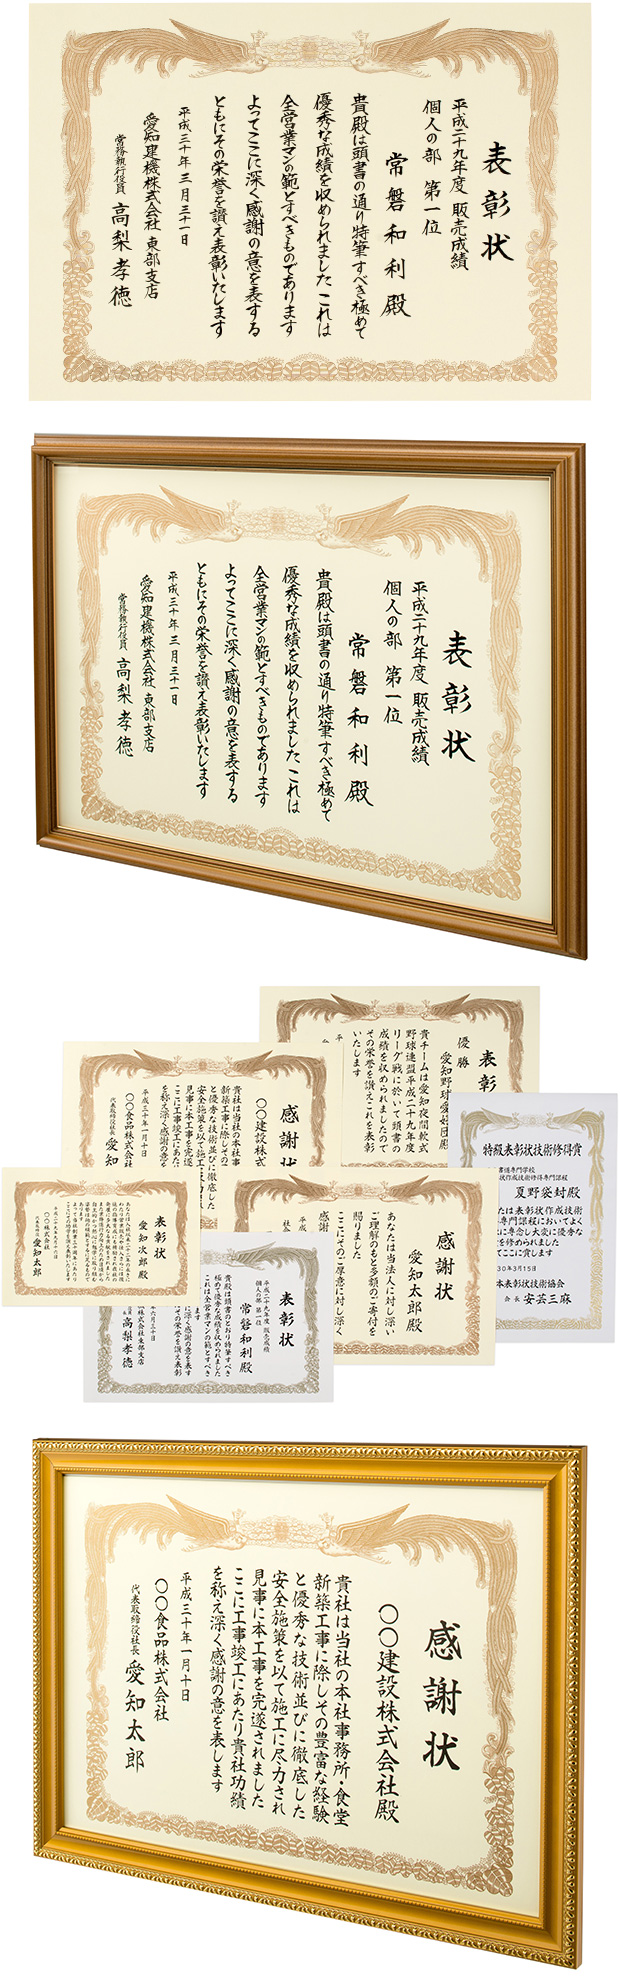 表彰状
平成二十九年度 販売成績
個人の部 第一位
常磐和利殿
貴殿は頭書の通り特筆すべき極めて
優秀な成績を収められました これは
全営業マンの範とすべきものであります
よってここに深く感謝の意を表する
ともにその栄誉を讃え表彰いたします
平成三十年 三月三十一日
愛知建機株式会社 東部支店
常務執行役員 高梨孝徳
表彰状
平成二十九年度 販売成績
個人の部 第一位
常磐和利殿
貴殿は頭書の通り特筆すべき極めて
優秀な成績を収められました これは
全営業マンの範とすべきものであります
よってここに深く感謝の意を表する
ともにその栄誉を讃え表彰いたします
平成三十年 三月三十一日
愛知建機株式会社 東部支店
常務執行役員 高梨孝徳
表彰
優勝
愛知野球愛好団
貴チームは愛知夜間軟式
野球連盟平成二十九年度
リーグ戦に於いて頭書の
成績を収められましたので
その栄誉を讃えこれを表彰
いたします
平
感謝状
〇〇建設株式
貴社は当社の本社事
新築工事に際しその
と優秀な技術並びに徹底した
安全施策を以て施工に
見事に本工事を完遂
ここに工事竣工にあた
を称え深く感謝の意
平成三十年一月十日
〇〇食品株式会
代表取締役社長 愛知
特級表彰状技術修得賞
書道専門学校
状作成技術修得専門課程
夏野袋封殿
たは表彰状作成技術
専門課程においてよく
に専念し大変に優秀な
を修められました
てここに賞します
30年3月15日
本表彰状技術協会
会長 安芸三麻
表彰状
愛知次郎殿
愛知太郎
感謝状
愛知太郎殿
あなたは当法人に対し深い
ご理解のもと多額のご寄付を
賜りました
ここにそのご厚意に対し深く
感謝
平成
社会
表彰状
平成二十九年度 販売成績
個人の部 第一位
常磐和利殿
貴殿は頭書のとおり特筆すべき
極めて優秀な成績を収められました
これは全営業マンの範とすべき
に深く感謝の意を表す
の栄誉を讃え表彰
ます
月三十日
株式会社東部支店
高梨孝徳
感謝状
〇〇建設株式会社殿
貴社は当社の本社事務所・食堂
新築工事に際しその豊富な経験
と優秀な技術並びに徹底した
安全施策を以て施工に尽力され
見事に本工事を完遂されました
ここに工事竣工にあたり貴社功績
を称え深く感謝の意を表します
平成三十年一月十日
〇〇食品株式会社
代表取締役社長 愛知太郎